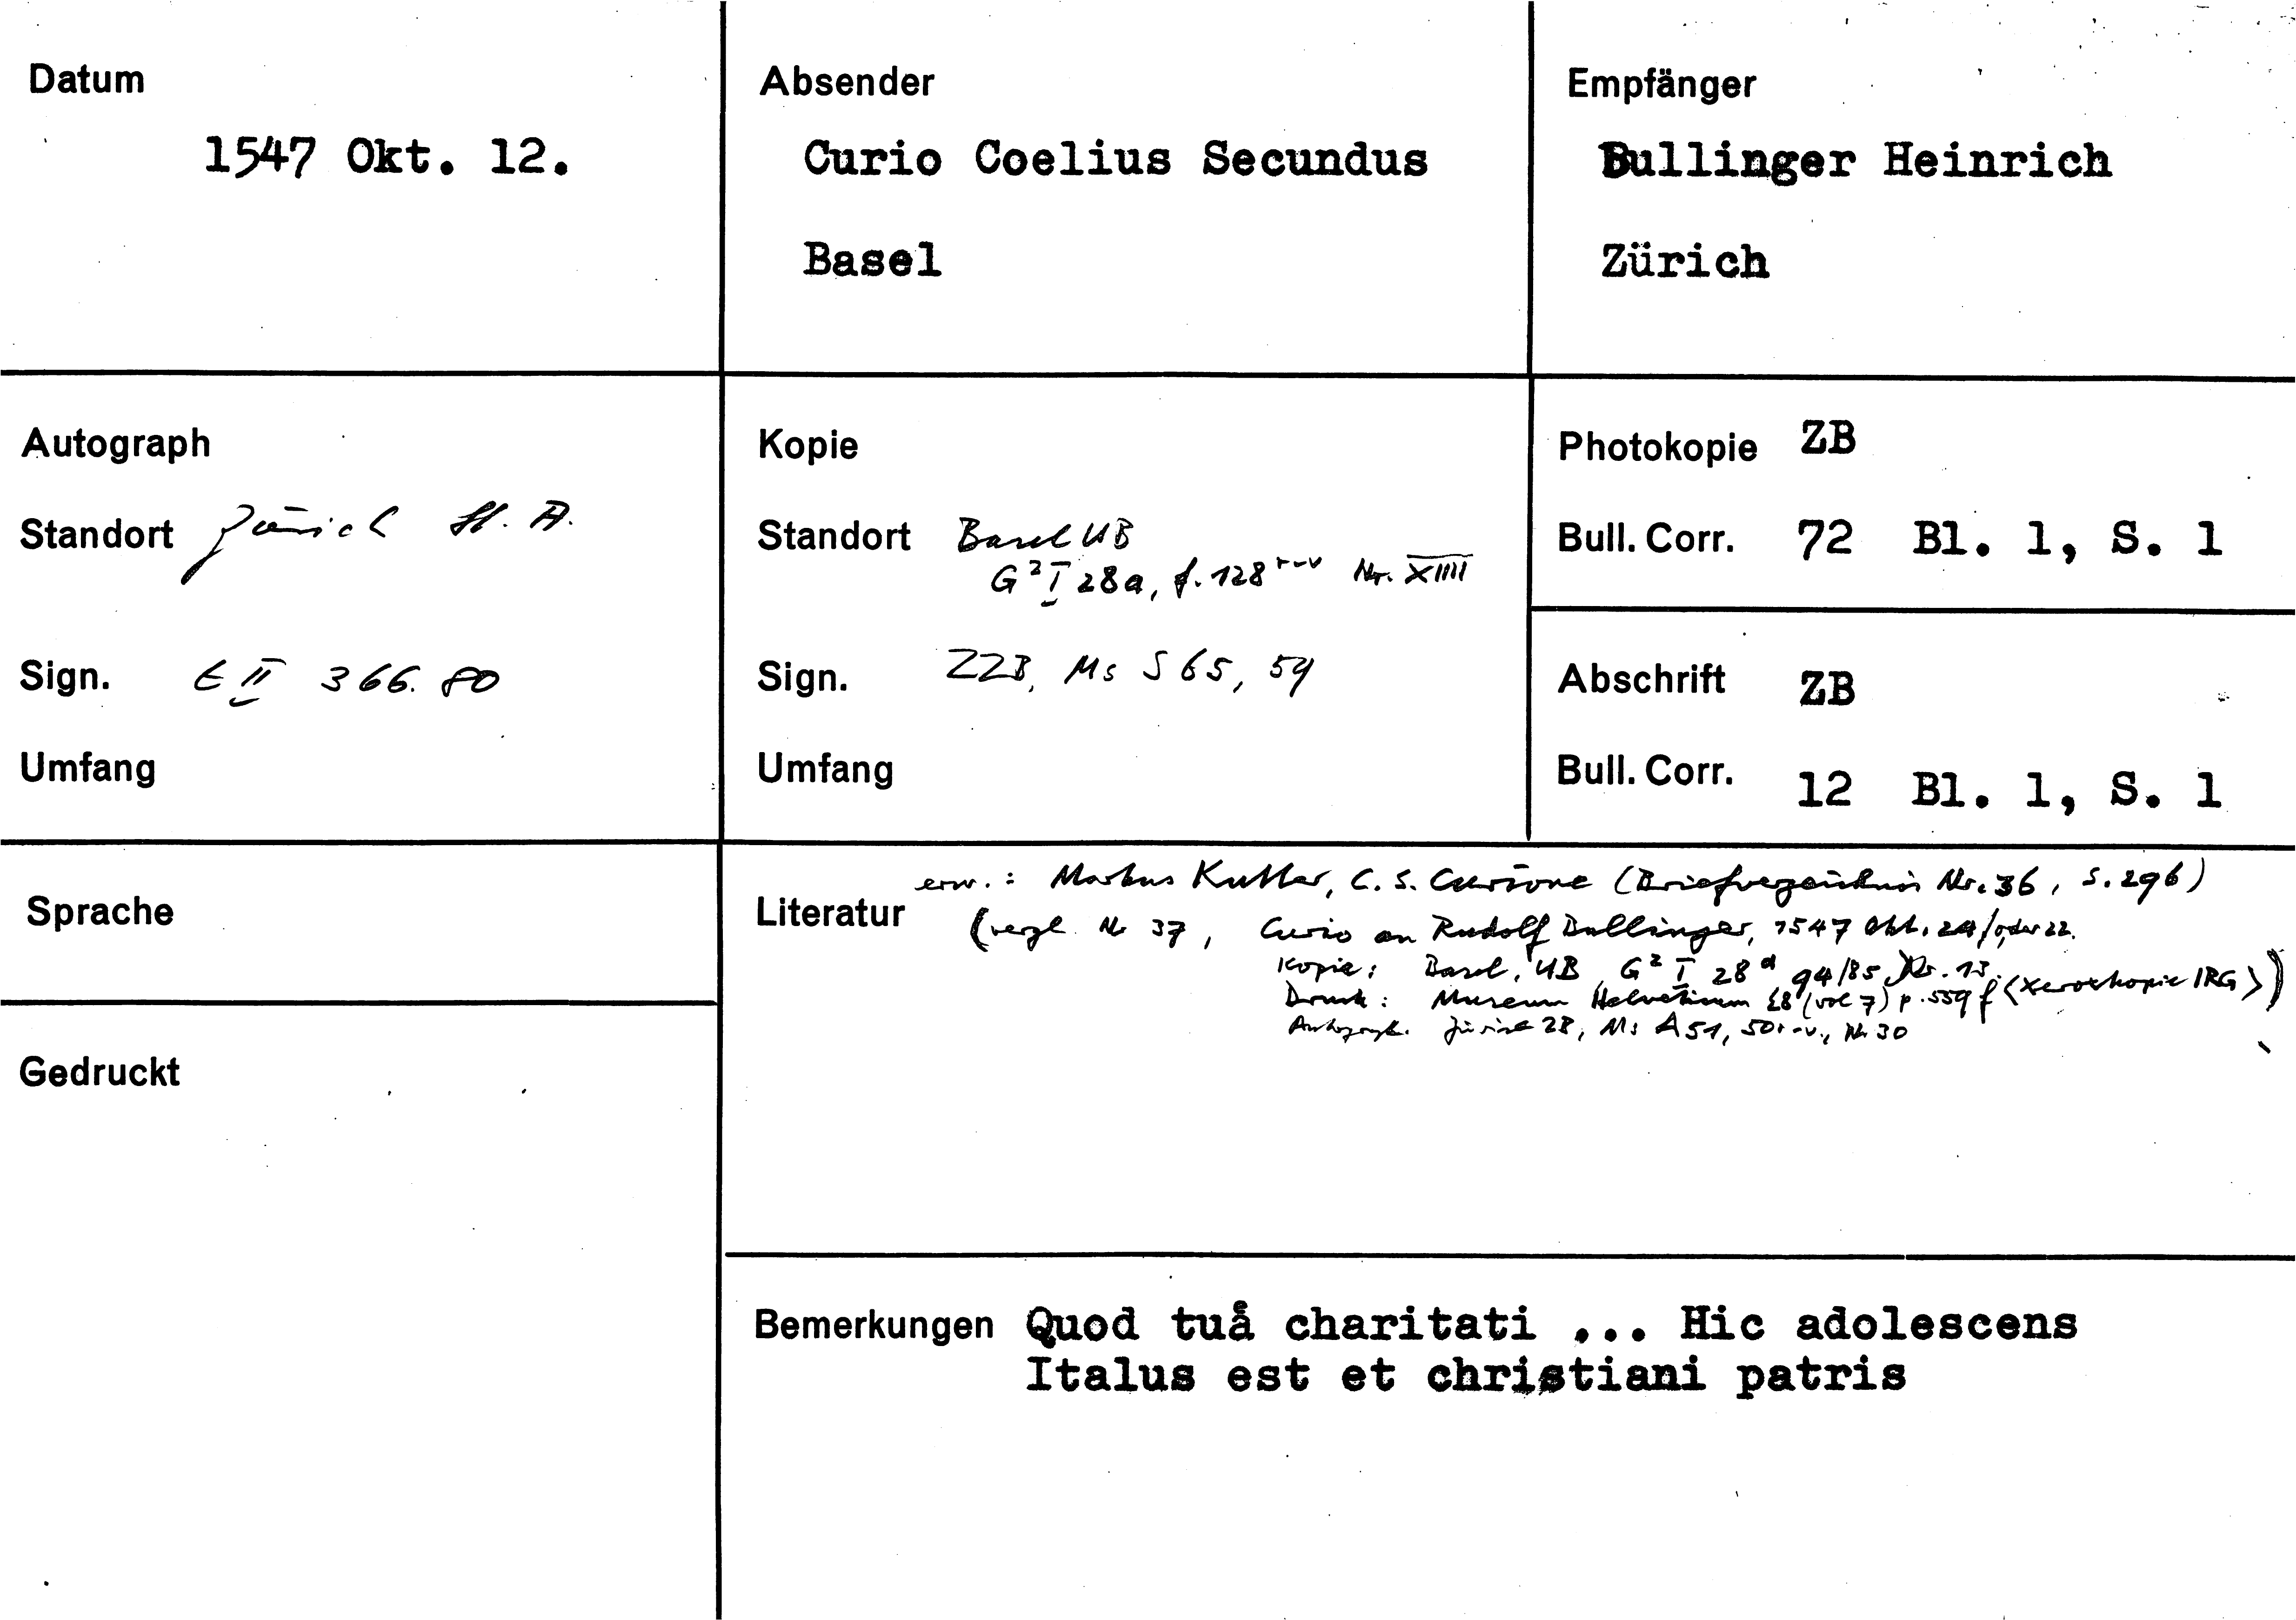 Datum
1547 Okt. 12.
Absender
Curio Coelius Secundus
Basel
Empfänger
Bullinger Heinrich
Zürich
Autograph
Standort Zürich St. A.
Sign. E II 366. 80
Umfang
Kopie
Standort Basel UB
G² I 28a, f. 128 r-v Nr. XIIII
Sign. ZZB, Ms S 65, 59
Umfang
Photokopie ZB
Bull. Corr. 72 Bl. 1, S. 1
Abschrift ZB
Bull. Corr. 12 Bl. 1, S. 1
Sprache
Gedruckt
Literatur erw.: Markus Kutter, C. S. Curione (Briefverzeichnis Nr. 36, S. 296)
(vergl. Nr 37, Curio an Rudolf Bullinger, 1547 Okt. 24/oder 22.
Kopie: Basel, UB G² I 28 94/85 Nr. 13. <Xeroxkopie IRG>)
Druck: Museum Helveticum 28 (vol 7) p. 559 f
Autograph. Zürich ZB, Ms A 51, 50r-v., Nr. 30
Bemerkungen Quod tuå charitati ... Hic adolescens
Italus est et christiani patris